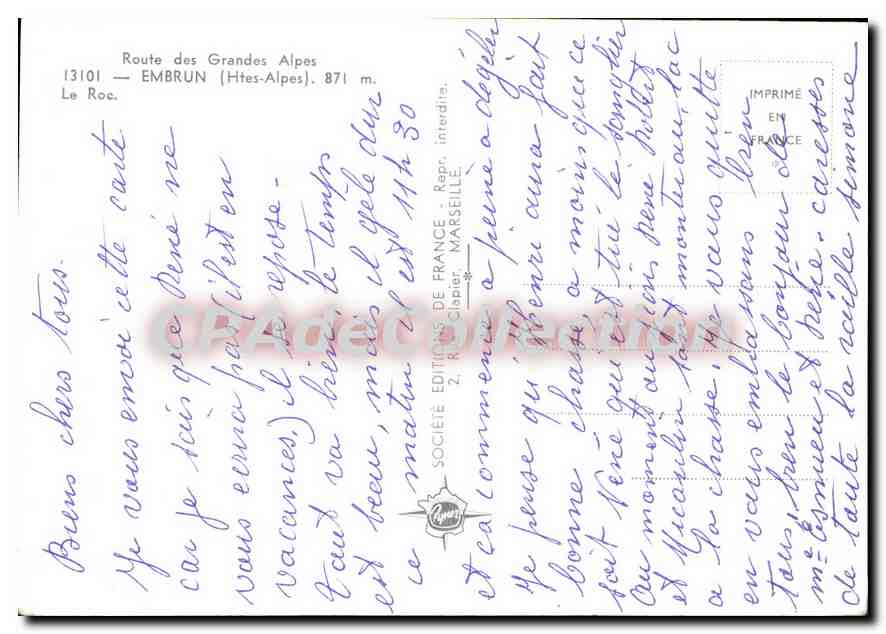 Route des Grandes Alpes
13101 — EMBRUN (Htes-Alpes). 871 m.
Le Roc.
Biens chers tous.
Je vous envoie cette carte
car je sais que René ne
vous ecrira pas (il est en
vacances,) il se repose -
Tout va bien, le temps
est beau, mais il gèle dur
ce matin il est 11 h 30
et ça commence a peine a dégeler
Je pense qu'Henri aura fait
bonne chasse, a moins que ce
soit René qui est tué le
Au moment ou
et tout
a la chasse, Je vous quitte
en vous embrassans bien
tous, bien le bonjour de
et caresses
de toute la simone
SOCIÉTÉ EDITIONS DE FRANCE - Repr. interdite.
2, R. Clapier, MARSEILLE.
IMPRIMÉ
EN
FRANCE
CPAdeCollection